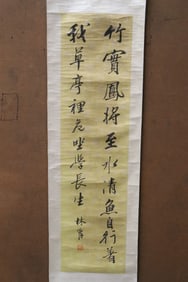 竹實鳳將至水清魚自行著
我草亭裡危坐學長生
林